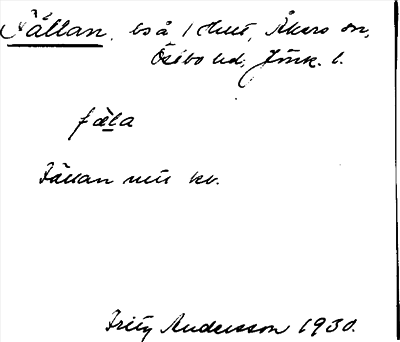 Fällan, bs å 1 Hult, Åkers sn,
Östbo hd, Jönk. l.
fæ̀la
Fällan nu kv.
Fritz Andersson 1930.